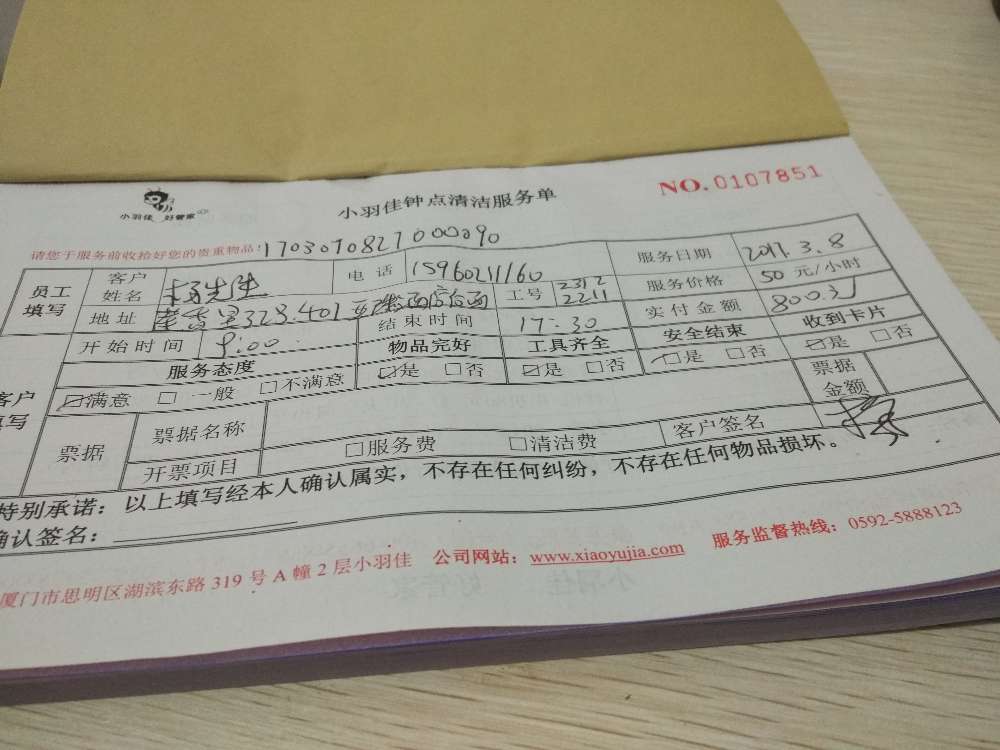 小羽佳 好管家
小羽佳钟点清洁服务单
NO.0107851
请您于服务前收拾好您的贵重物品!
员工填写 客户姓名 杨先生 电话 15960211160 服务日期 2017.3.8
地址 323.401 工号 2312 2211 服务价格 50元/小时
开始时间 9:00 结束时间 17:30 实付金额 800元
客户填写 服务态度 物品完好 工具齐全 安全结束 收到卡片
☑满意 □一般 □不满意 ☑是 □否 ☑是 □否 ☑是 □否 ☑是 □否
票据 票据名称 票据金额
开票项目 □服务费 □清洁费 客户签名 杨
特别承诺：以上填写经本人确认属实，不存在任何纠纷，不存在任何物品损坏。
确认签名：
厦门市思明区湖滨东路 319 号 A 幢 2 层小羽佳 公司网站：www.xiaoyujia.com 服务监督热线：0592-5888123